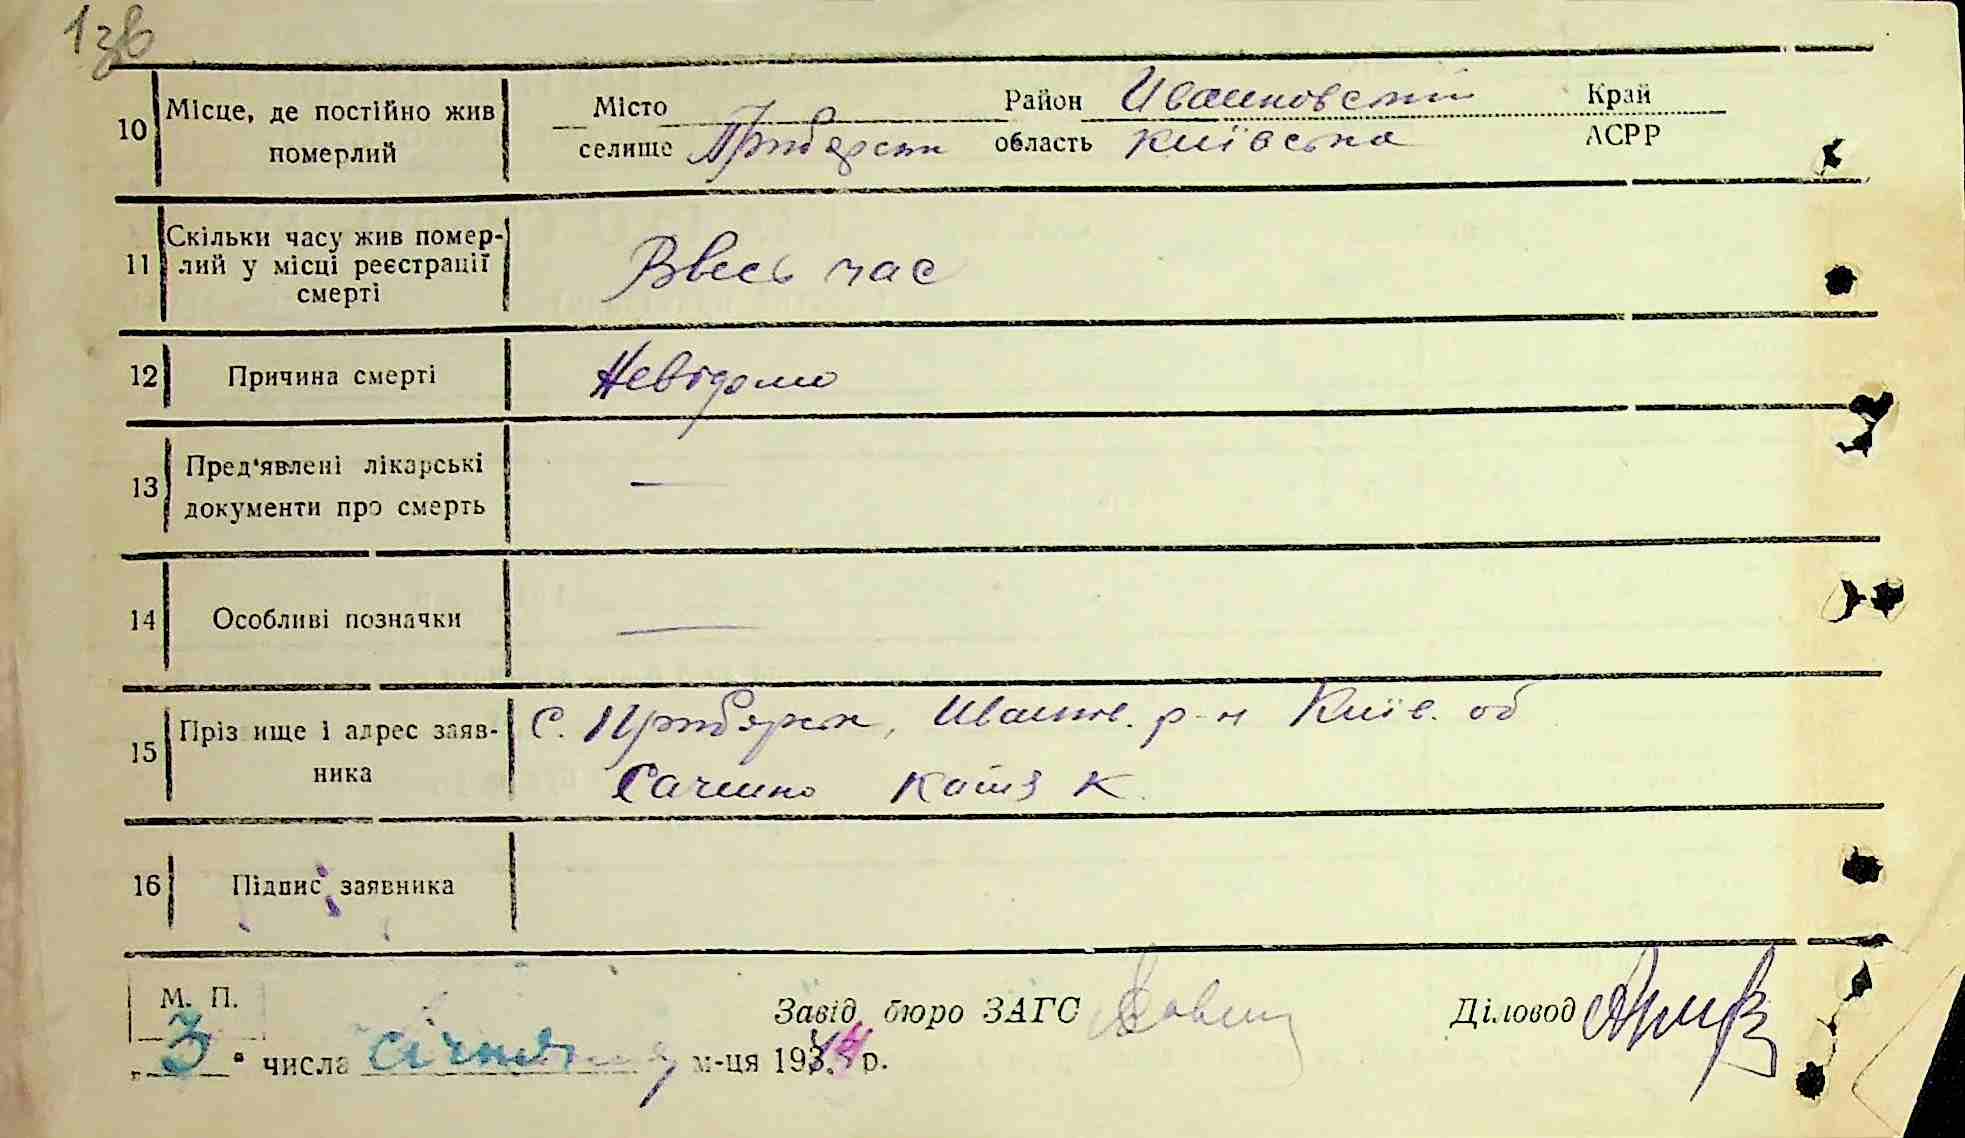 136
10 Місце, де постійно жив померлий Місто Район Ивановский Край
селище Прибірськ область Київська АСРР
11 Скільки часу жив помер-
лий у місці реєстрації
смерті Ввесь час
12 Причина смерті Невідомо
13 Пред'явлені лікарські
документи про смерть —
14 Особливі позначки —
15 Пріз ище і адрес заяв-
ника С. Прибірськ, Иванк. р-н Київ. об
Катя К.
16 Підпис заявника
М. П.
Завід. бюро ЗАГС Діловод
„3" числа січня м-ця 1934 р.